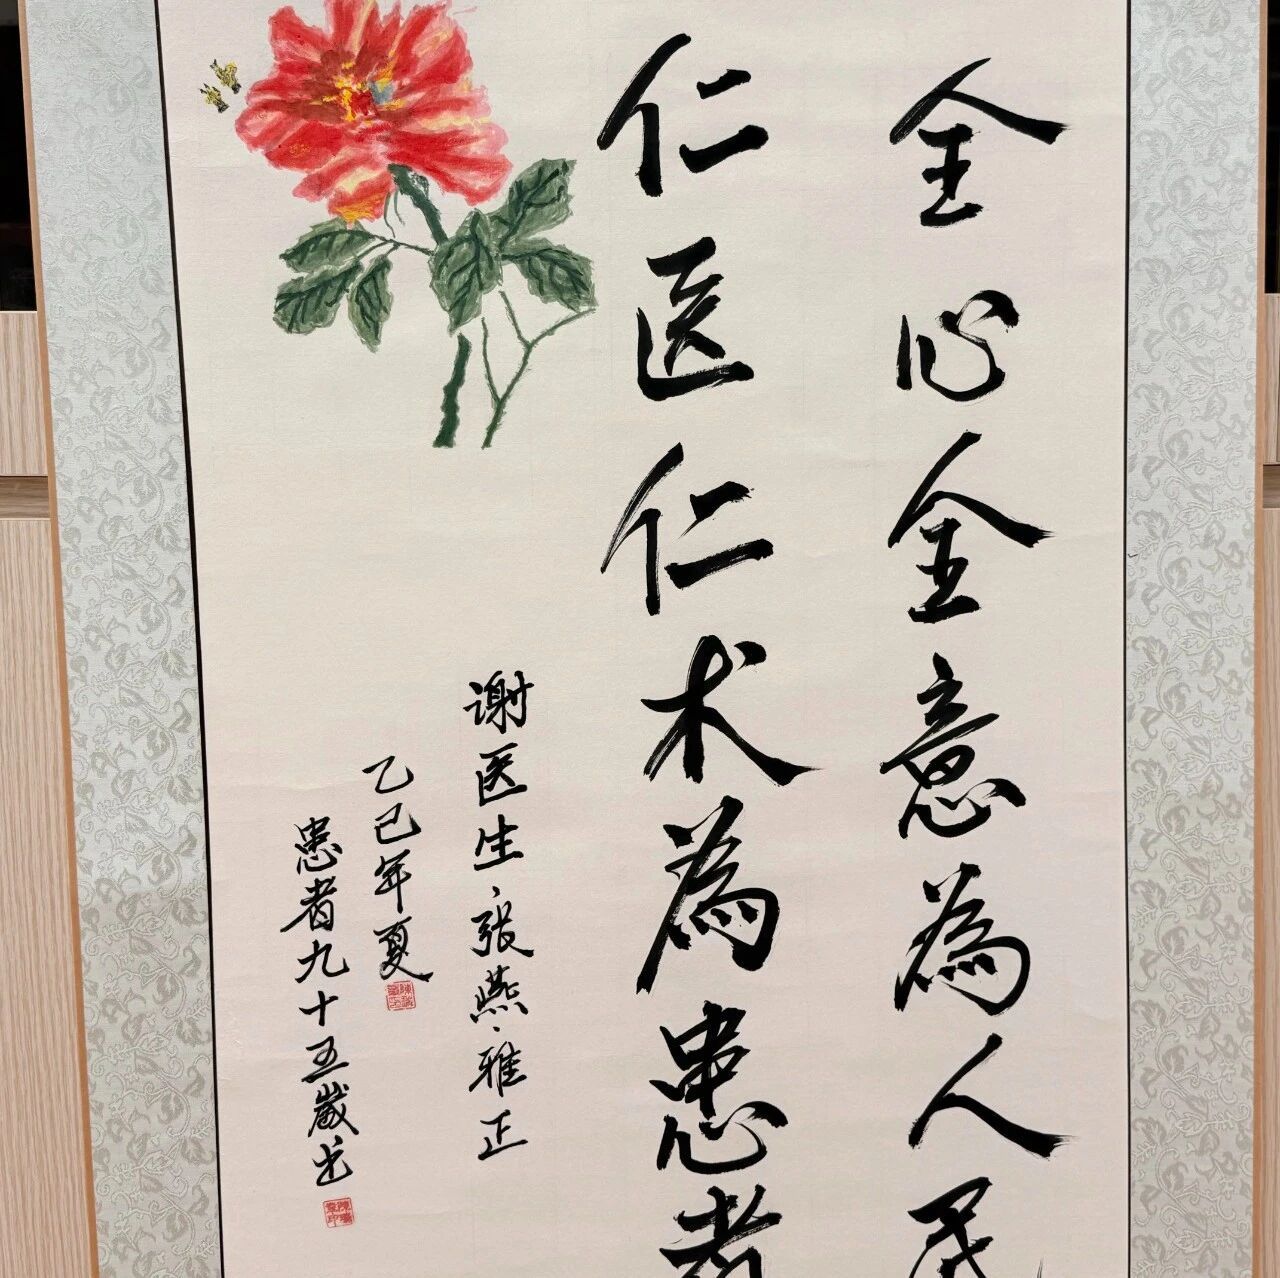 全心全意為人民
仁医仁术為患者
谢医生、张燕、雅正
乙巳年夏
患者九十五歲书